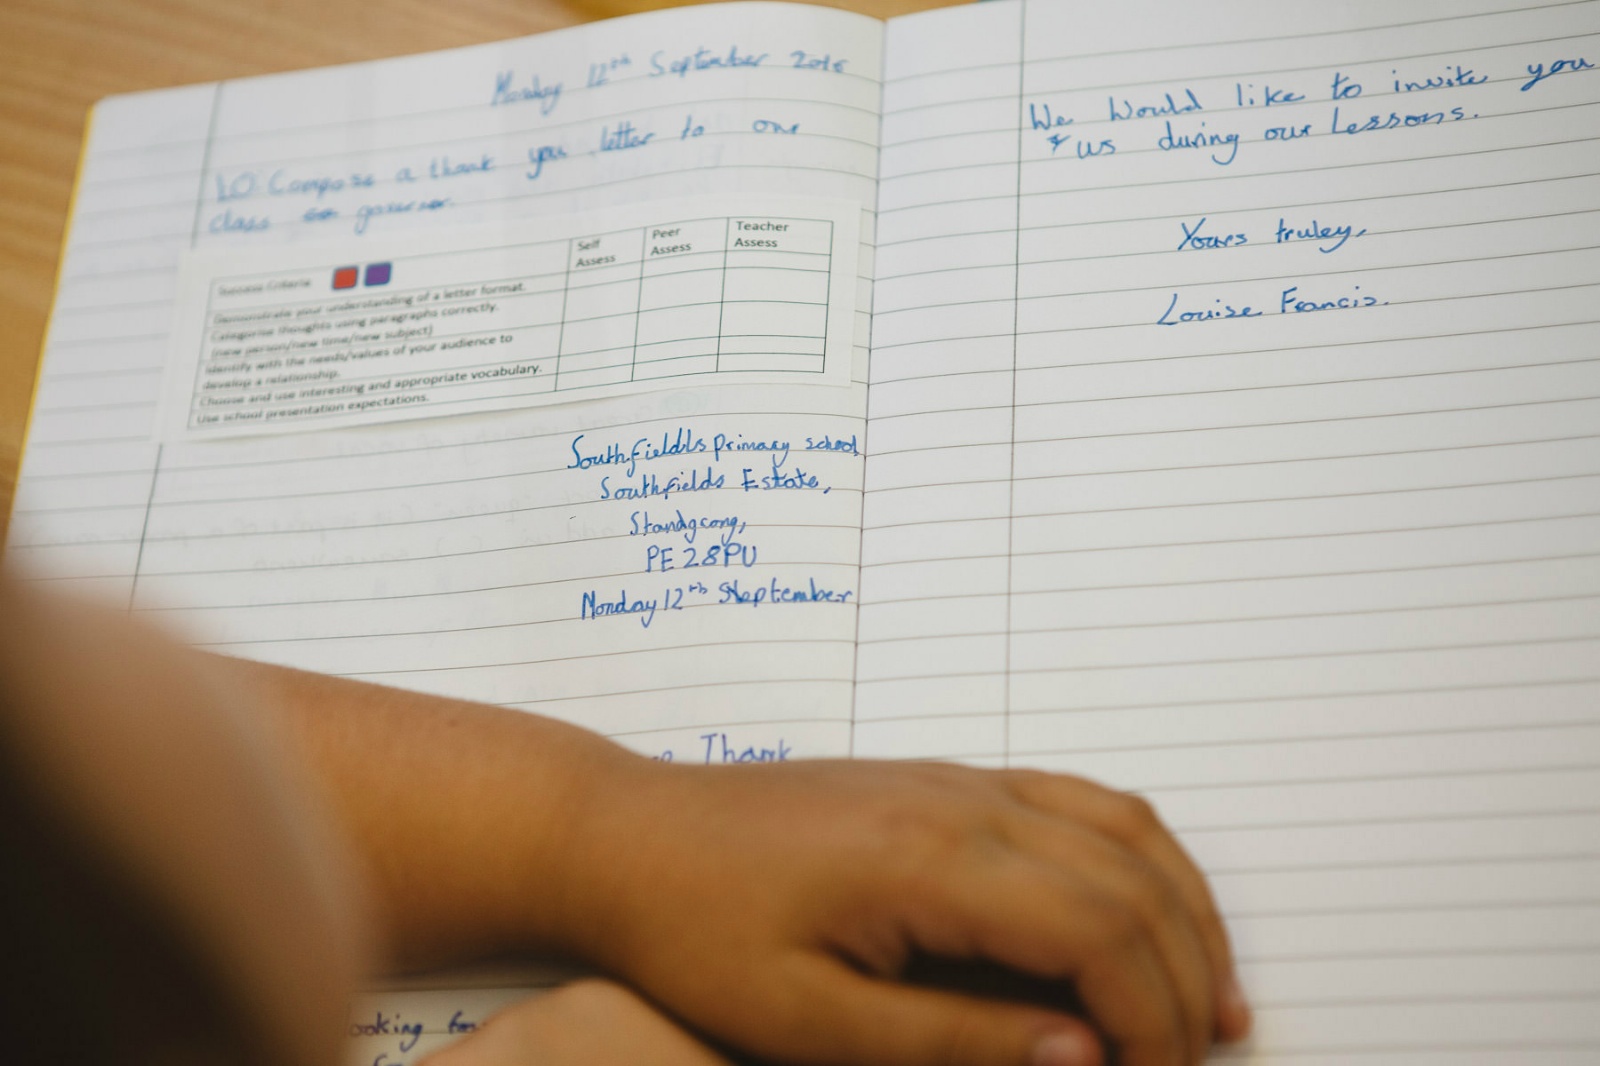 Monday 12th September 2016
LO: Compose a thank you letter to our
class governor.
Success Criteria
Self
Assess
Peer
Assess
Teacher
Assess
Demonstrate your understanding of a letter format.
Categorise thoughts using paragraphs correctly.
(new person/new time/new subject)
Identify with the needs/values of your audience to
develop a relationship.
Choose and use interesting and appropriate vocabulary.
Use school presentation expectations.
Southfields primary school
Southfields Estate,
Standgrong,
PE28PU
Monday 12th September
Thank
ooking for
We Would like to invite you
us during our Lessons.
Yours truley,
Louise Francis.